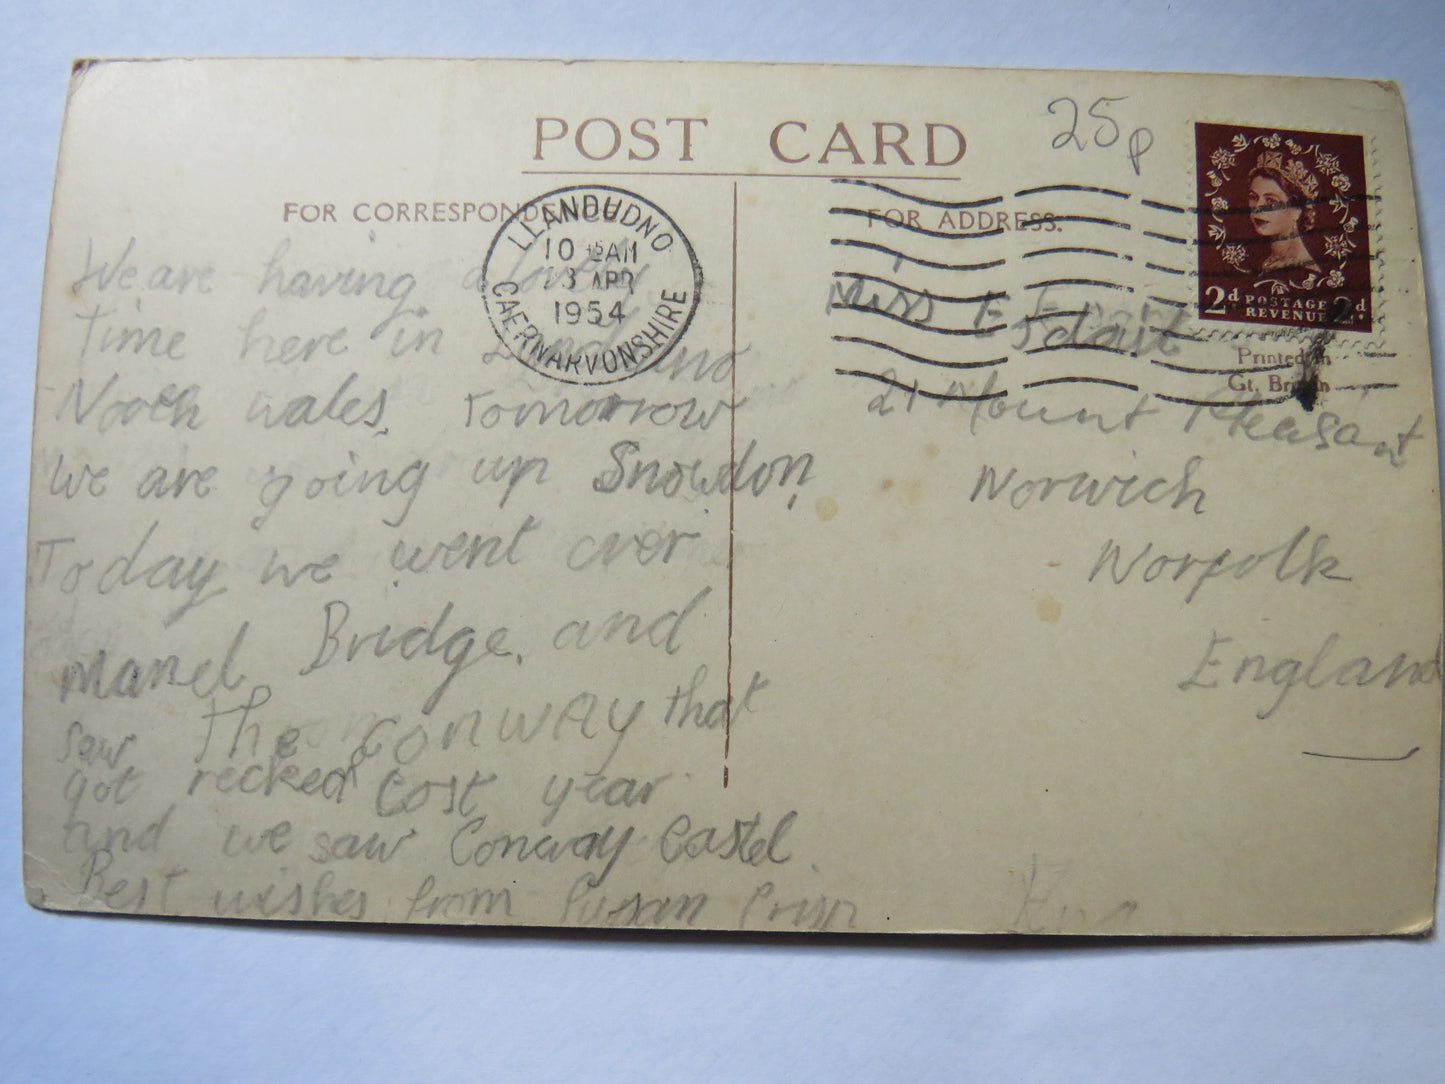 POST CARD
25p
FOR CORRESPONDENCE
FOR ADDRESS.
LLANDUDNO
10 15AM
3 APR
1954
CAERNARVONSHIRE
2d POSTAGE 2d.
REVENUE
Printed in
Gt. Britain
We are having a lovely
Time here in
North wales. Tomorrow
we are going up Snowdon,
Today we went over
Manel Bridge. and
saw The conway that
got recked Cost year
and we saw Conway Castel
Best wishes from Susan Crisp
Miss E
21 Mount Pleasant
Norwich
Norfolk
England